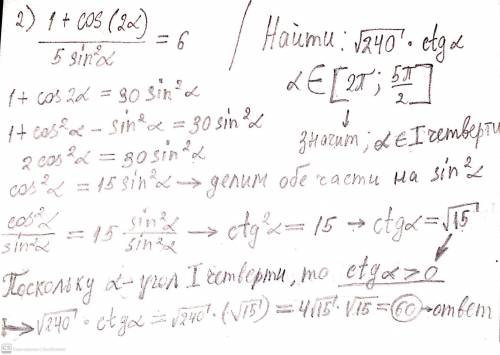 2) (1 + cos(2α)) / (5 sin²α) = 6
Найти: √240 · ctgα
α ∈ [2π; 5π/2]
↓
значит, α ∈ I четверти
1 + cos2α = 30 sin²α
1 + cos²α − sin²α = 30 sin²α
2 cos²α = 30 sin²α
cos²α = 15 sin²α → делим обе части на sin²α
cos²α / sin²α = 15 sin²α / sin²α → ctg²α = 15 → ctgα = √15
Поскольку α – угол I четверти, то ctgα > 0
↳ √240 · ctgα = √240 · (√15) = 4√15 · √15 = 60 → ответ